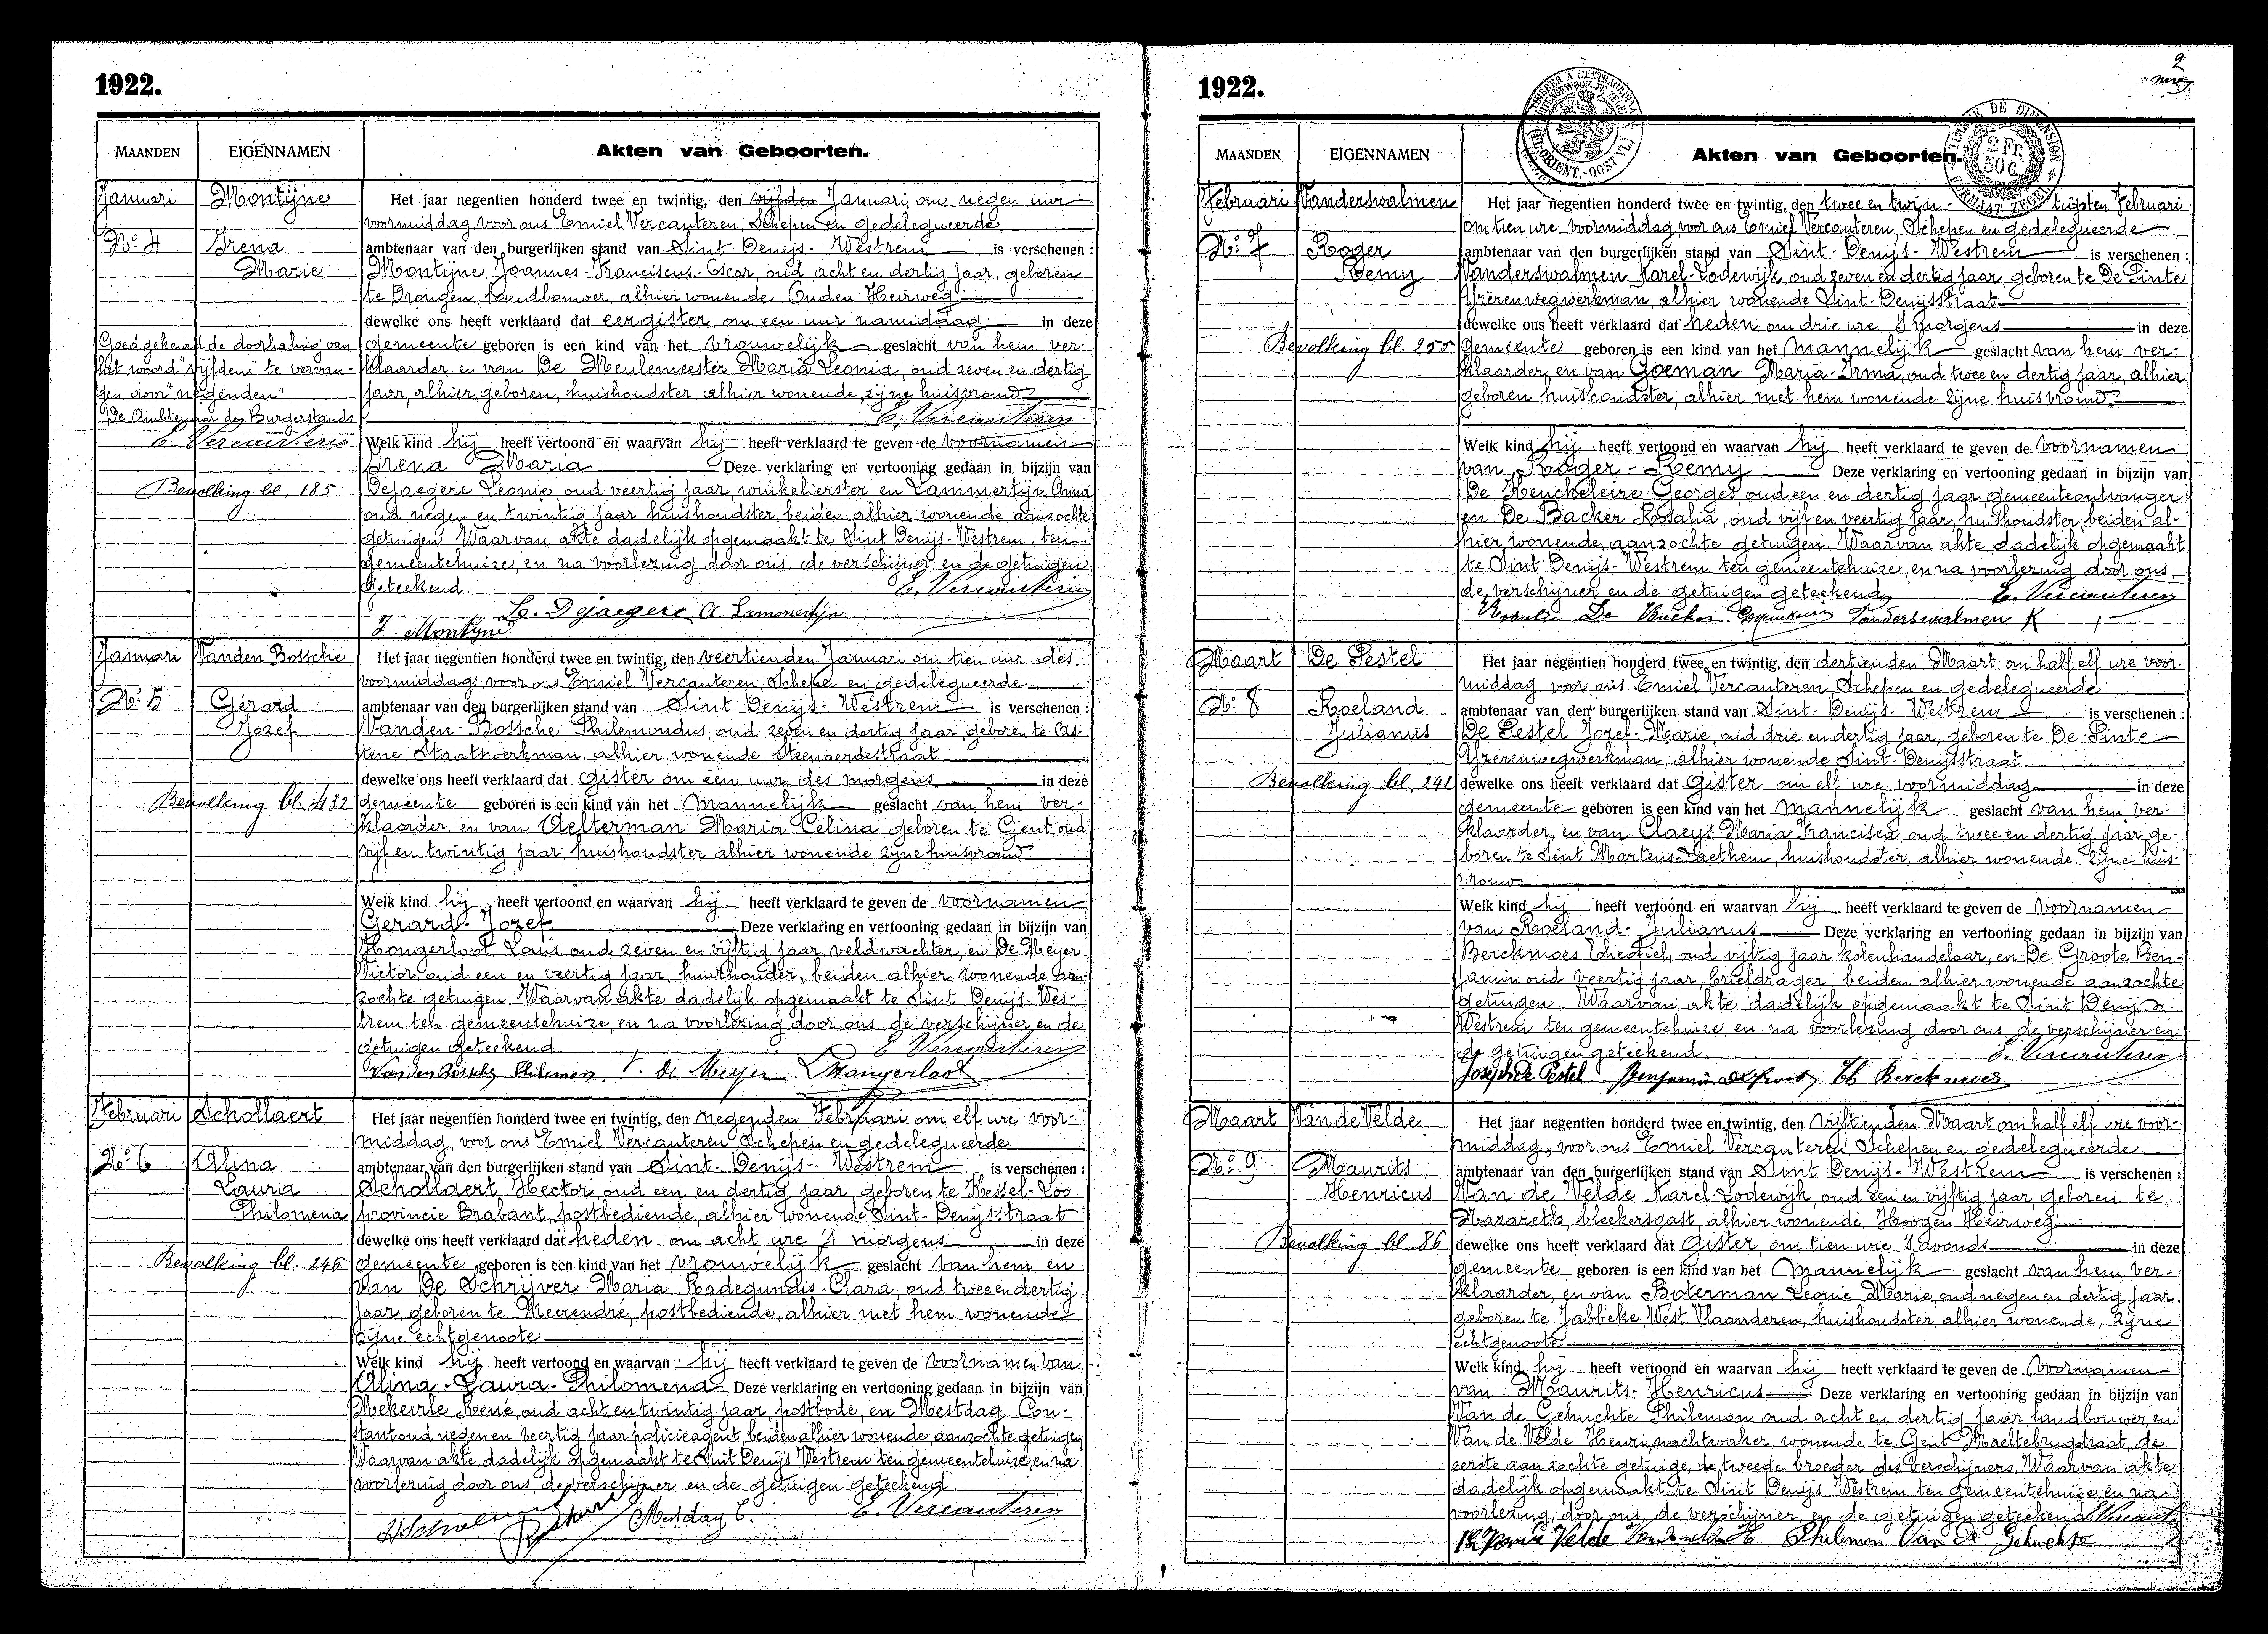 1922.
MAANDEN EIGENNAMEN Akten van Geboorten.
Januari Montijne
Het jaar negentien honderd twee en twintig, den vijfden Januari, om negen uur
voormiddag voor ons Emiel Vercauteren, Schepen en gedelegueerde
No. 4 Irena
ambtenaar van den burgerlijken stand van Sint Denijs-Westrem is verschenen :
Marie
Montijne Joannes-Franciscus-Oscar, oud acht en dertig jaar, geboren
te Drongen, landbouwer, alhier wonende Ouden Heirweg
dewelke ons heeft verklaard dat eergister om een uur namiddag in deze
Goedgekeurd de doorhaling van
gemeente geboren is een kind van het vrouwelijk geslacht van hem ver-
het woord "vijfden" te vervan-
klaarder, en van De Meulemeester Maria Leonia, oud zeven en dertig
gen door "negenden"
jaar, alhier geboren, huishoudster, alhier wonende, zijne huisvrouw
De Ambtenaar des Burgerstands
E. Vercauteren
E. Vercauteren
Welk kind hij heeft vertoond en waarvan hij heeft verklaard te geven de voornamen
Irena Maria Deze verklaring en vertooning gedaan in bijzijn van
Bevolking bl. 185
Dejaegere Leonie, oud veertig jaar, winkelierster, en Lammertijn Anna
oud negen en twintig jaar huishoudster, beiden alhier wonende, aanzochte
getuigen. Waarvan akte dadelijk opgemaakt te Sint Denijs-Westrem, ten
gemeentehuize, en na voorlezing door ons, de verschijner en de getuigen
geteekend. E. Vercauteren
L. Dejaegere A Lammertijn
J. Montijne
Januari Vanden Bossche
Het jaar negentien honderd twee en twintig, den veertienden Januari om tien uur des
voormiddags, voor ons Emiel Vercauteren, Schepen en gedelegueerde
No. 5 Gérard
ambtenaar van den burgerlijken stand van Sint Denijs-Westrem is verschenen :
Jozef
Vanden Bossche Philemondus, oud zeven en dertig jaar, geboren te As-
tene, Staatswerkman, alhier wonende Steenaerdestraat
dewelke ons heeft verklaard dat Gister om één uur des morgens in deze
Bevolking bl. 432
gemeente geboren is een kind van het Mannelijk geslacht van hem ver-
klaarder, en van Aelterman Maria Celina geboren te Gent, oud
vijf en twintig jaar, huishoudster alhier wonende zijne huisvrouw
Welk kind hij heeft vertoond en waarvan hij heeft verklaard te geven de voornamen
Gerard-Jozef Deze verklaring en vertooning gedaan in bijzijn van
Hongerloot Louis oud zeven en vijftig jaar, veldwachter, en De Meyer
Victor, oud een en veertig jaar, huurhouder, beiden alhier wonende aan-
zochte getuigen. Waarvan akte dadelijk opgemaakt te Sint Denijs-Wes-
trem ten gemeentehuize, en na voorlezing door ons, de verschijner en de
getuigen geteekend. E Vercauteren
Vanden Bossche Philemon V. de Meyer Hongerloot
Februari Schollaert
Het jaar negentien honderd twee en twintig, den negenden Februari om elf ure voor-
middag, voor ons Emiel Vercauteren Schepen en gedelegueerde
No. 6 Alina
ambtenaar van den burgerlijken stand van Sint-Denijs-Westrem is verschenen :
Laura
Schollaert Hector, oud een en dertig jaar, geboren te Kessel-Loo
Philomena
provincie Brabant, postbediende, alhier wonende Sint-Denijsstraat
dewelke ons heeft verklaard dat heden om acht ure 's morgens in deze
Bevolking bl. 246
gemeente geboren is een kind van het vrouwelijk geslacht van hem en
van De Schrijver Maria Radegundis-Clara, oud twee en dertig
jaar, geboren te Meerendré, postbediende, alhier met hem wonende
zijne echtgenoote
Welk kind hij heeft vertoond en waarvan hij heeft verklaard te geven de voornamen van
Alina-Laura-Philomena Deze verklaring en vertooning gedaan in bijzijn van
Mekeirle René, oud acht en twintig jaar, postbode, en Mestdag Con-
stant oud negen en veertig jaar policieagent, beiden alhier wonende, aanzochte getuigen
Waarvan akte dadelijk opgemaakt te Sint Denijs Westrem ten gemeentehuize, en na
voorlezing door ons, de verschijner en de getuigen geteekend.
Mestdag C. E. Vercauteren
1922.
2
MAANDEN EIGENNAMEN Akten van Geboorten.
2 Fr. 50 C.
Februari Vanderswalmen
Het jaar negentien honderd twee en twintig, den twee en twin-tigsten Februari
om tien ure voormiddag, voor ons Emiel Vercauteren, Schepen en gedelegueerde
No. 7 Roger
ambtenaar van den burgerlijken stand van Sint-Denijs-Westrem is verschenen :
Remy
Vanderswalmen Karel-Lodewijk, oud zeven en dertig jaar, geboren te De Pinte
Yzerenwegwerkman, alhier wonende Sint-Denijsstraat
dewelke ons heeft verklaard dat heden om drie ure 's morgens in deze
Bevolking bl. 255
gemeente geboren is een kind van het mannelijk geslacht van hem ver-
klaarder, en van Goeman Maria-Irma, oud twee en dertig jaar, alhier
geboren, huishoudster, alhier met hem wonende zijne huisvrouw
Welk kind hij heeft vertoond en waarvan hij heeft verklaard te geven de voornamen
van Roger-Remy Deze verklaring en vertooning gedaan in bijzijn van
De Keuckeleire Georges, oud een en dertig jaar gemeenteontvanger
en De Backer Rosalia, oud vijf en veertig jaar, huishoudster, beiden al-
hier wonende, aanzochte getuigen. Waarvan akte dadelijk opgemaakt
te Sint Denijs-Westrem ten gemeentehuize, en na voorlezing door ons
de verschijner en de getuigen geteekend, E. Vercauteren
Rosalie De Backer Vanderswalmen K
Maart De Pestel
Het jaar negentien honderd twee en twintig, den dertienden Maart, om half elf ure voor-
middag voor ons Emiel Vercauteren, Schepen en gedelegueerde
No. 8 Roeland
ambtenaar van den burgerlijken stand van Sint-Denijs-Westrem is verschenen :
Julianus
De Pestel Jozef-Marie, oud drie en dertig jaar, geboren te De Pinte
Yzerenwegwerkman, alhier wonende Sint-Denijsstraat
Bevolking bl. 241
dewelke ons heeft verklaard dat Gister om elf ure voormiddag in deze
gemeente geboren is een kind van het mannelijk geslacht van hem ver-
klaarder, en van Claeys Maria Francisca oud twee en dertig jaar ge-
boren te Sint Martens-Laethem, huishoudster, alhier wonende zijne huis-
vrouw
Welk kind hij heeft vertoond en waarvan hij heeft verklaard te geven de voornamen
van Roeland-Julianus Deze verklaring en vertooning gedaan in bijzijn van
Berckmoes Theofiel, oud vijftig jaar kolenhandelaar, en De Groote Ben-
jamin oud veertig jaar briefdrager, beiden alhier wonende aanzochte
getuigen Waarvan akte dadelijk opgemaakt te Sint Denijs-
Westrem ten gemeentehuize, en na voorlezing door ons, de verschijner en
de getuigen geteekend. E. Vercauteren
Joseph De Pestel Benjamin De Groote Th Berckmoes
Maart Van de Velde
Het jaar negentien honderd twee en twintig, den Vijftienden Maart om half elf ure voor-
middag, voor ons Emiel Vercauteren Schepen en gedelegueerde
No. 9 Maurits
ambtenaar van den burgerlijken stand van Sint Denijs-Westrem is verschenen :
Henricus
Van de Velde Karel-Lodewijk, oud een en vijftig jaar, geboren te
Nazareth, bleekersgast, alhier wonende, Hoogen Heirweg
Bevolking bl. 86
dewelke ons heeft verklaard dat Gister, om tien ure 's avonds in deze
gemeente geboren is een kind van het Mannelijk geslacht van hem ver-
klaarder, en van Boterman Leonie Marie, oud negen en dertig jaar
geboren te Jabbeke, West Vlaanderen, huishoudster, alhier wonende, zijne
echtgenoote
Welk kind hij heeft vertoond en waarvan hij heeft verklaard te geven de voornamen
van Maurits-Henricus Deze verklaring en vertooning gedaan in bijzijn van
Van de Gehuchte Philemon oud acht en dertig jaar, landbouwer, en
Van de Velde Henri nachtwaker wonende te Gent Maeltebrugstraat, de
eerste aanzochte getuige, de tweede broeder des verschijners. Waarvan akte
dadelijk opgemaakt te Sint Denijs Westrem ten gemeentehuize, en na
voorlezing door ons, de verschijner en de getuigen geteekend. E Vercauteren
Van de Velde Van de velde H Philemon Van De Gehuchte